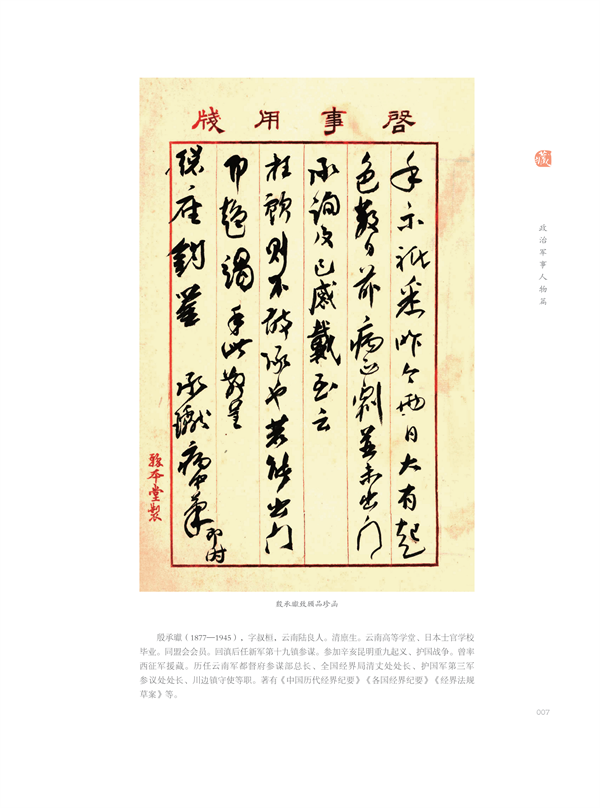 啓事用牋
手示祗悉昨今兩日大有起
色數日前病正劇並未出门
承詢及已感戴至云
枉顧則不敢承也若能出门
即趋謁手此敬呈
鈞鑒 承瓛病中筆 即时
本堂製
政治军事人物篇
殷承瓛致顾品珍函
殷承瓛（1877—1945），字叔桓，云南陆良人。清廪生。云南高等学堂、日本士官学校
毕业。同盟会会员。回滇后任新军第十九镇参谋。参加辛亥昆明重九起义、护国战争。曾率
西征军援藏。历任云南军都督府参谋部总长、全国经界局清丈处处长、护国军第三军
参议处处长、川边镇守使等职。著有《中国历代经界纪要》《各国经界纪要》《经界法规
草案》等。
007